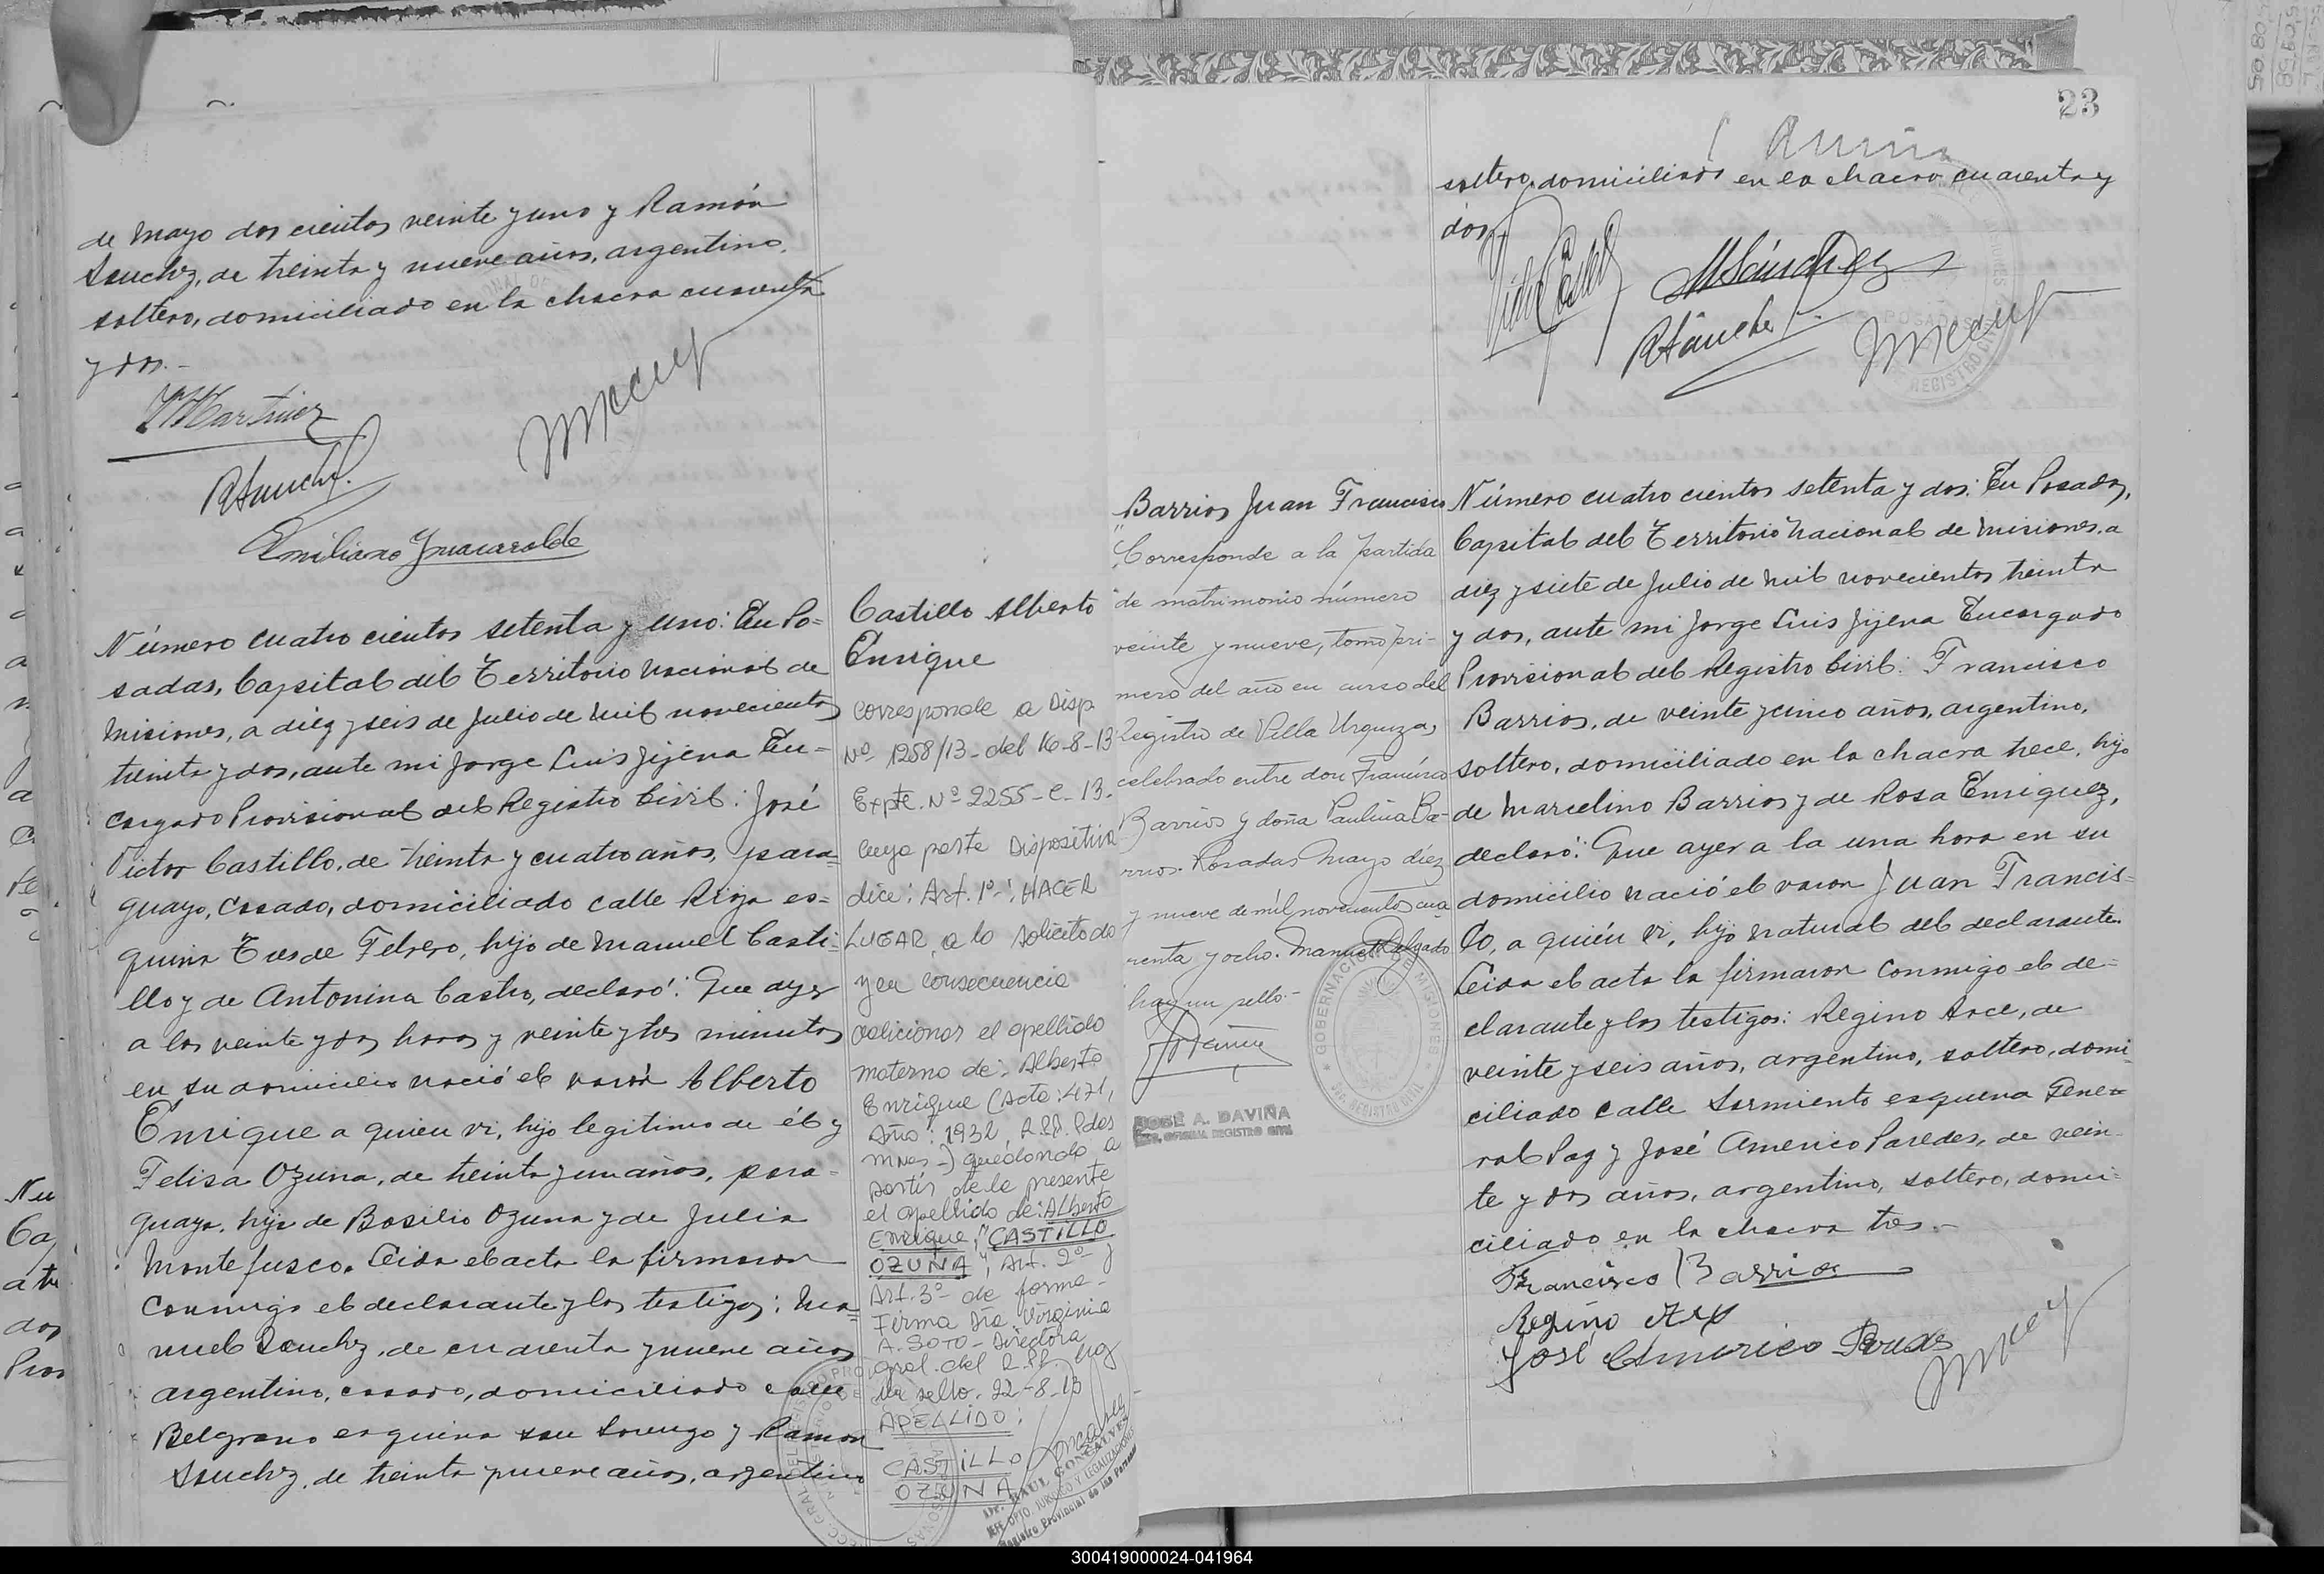 de Mayo dos cientos veinte y uno y Ramón
Sanchez, de treinta y nueve años, argentino,
soltero, domiciliado en la chacra cuarenta
y dos.-
Martinez
RSanchez
Emiliano
Número cuatro cientos setenta y uno: En Po=
sadas, Capital del Territorio Nacional de
Misiones, a diez y seis de Julio de mil novecientos
treinta y dos, ante mi Jorge Luis Jijena En=
cargado Provisional del Registro Civil: José
Victor Castillo, de treinta y cuatro años, para=
guayo, casado, domiciliado calle Rioja es=
quina Tres de Febrero, hijo de Manuel Casti=
llo y de Antonina Castro, declaró: Que ayer
a las veinte y dos horas y veinte y tres minutos
en su domicilio nació el varón Alberto
Enrique a quien vi, hijo legitimo de él y
Felisa Ozuna, de treinta y un años, para=
guaya, hija de Basilio Ozuna y de Julia
Montefusco. Leida el acta la firmaron
conmigo el declarante y los testigos: Ma=
nuel Sanchez, de cuarenta y nueve años
argentino, casado, domiciliado calle
Belgrano esquina San Lorenzo y Ramon
Sanchez, de treinta y nueve años, argentino
Castillo Alberto
Enrique
Corresponde a Disp.
Nº 1258/13 - del 16-8-13
Expte. Nº 2255-C-13.
cuya parte Dispositiva
dice: Art. 1º: HACER
LUGAR a lo solicitado
y en consecuencia
adicionar el apellido
materno de: Alberto
Enrique (Acta: 471,
Año: 1932, R.P. Pdas
Mnes-) quedando a
partir de la presente
el apellido de: Alberto
Enrique, "CASTILLO
OZUNA", Art. 2º y
Art. 3º de forma-
Firma Dra. Virginia
A. SOTO - Directora
Gral. del R.P. Hay
un sello. 22-8-13
APELLIDO:
CASTILLO
OZUNA
Dr. RAUL GONCALVES
JEFE DPTO. JURIDICO Y LEGALIZACIONES
Registro Provincial de las Personas
23
soltero, domiciliado en la chacra cuarenta y
dos
MSánchez
RSanchez
Barrios Juan Francisco
"Corresponde a la partida
"de matrimonio número
veinte y nueve, tomo pri-
mero del año en curso del
Registro de Villa Urquiza,
celebrado entre don Francisco
Barrios y doña Paulina Ba-
rrios. Posadas Mayo diez
y nueve de mil novecientos cua
renta y ocho. Manuel Delgado
hay un sello.-
GOBERNACION DE MISIONES
REGISTRO CIVIL
JOSÉ A. DAVIÑA
OFICIAL REGISTRO CIVIL
Número cuatro cientos setenta y dos: En Posadas,
Capital del Territorio Nacional de Misiones, a
diez y siete de Julio de mil novecientos treinta
y dos, ante mi Jorge Luis Jijena Encargado
Provisional del Registro Civil: Francisco
Barrios, de veinte y cinco años, argentino,
soltero, domiciliado en la chacra trece, hijo
de Marcelino Barrios y de Rosa Enriquez,
declaró: Que ayer a la una hora en su
domicilio nació el varon Juan Francis=
co, a quién vi, hijo natural del declarante.
Leida el acta la firmaron conmigo el de=
clarante y los testigos: Regino Arce, de
veinte y seis años, argentino, soltero, domi=
ciliado calle Sarmiento esquina Gene=
ral Paz y José Americo Paredes, de vein=
te y dos años, argentino, soltero, domi=
ciliado en la chacra tres.-
Francisco Barrios
Regino Arce
José Americo Paredes
300419000024-041964